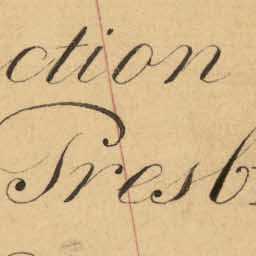 ction
Presb